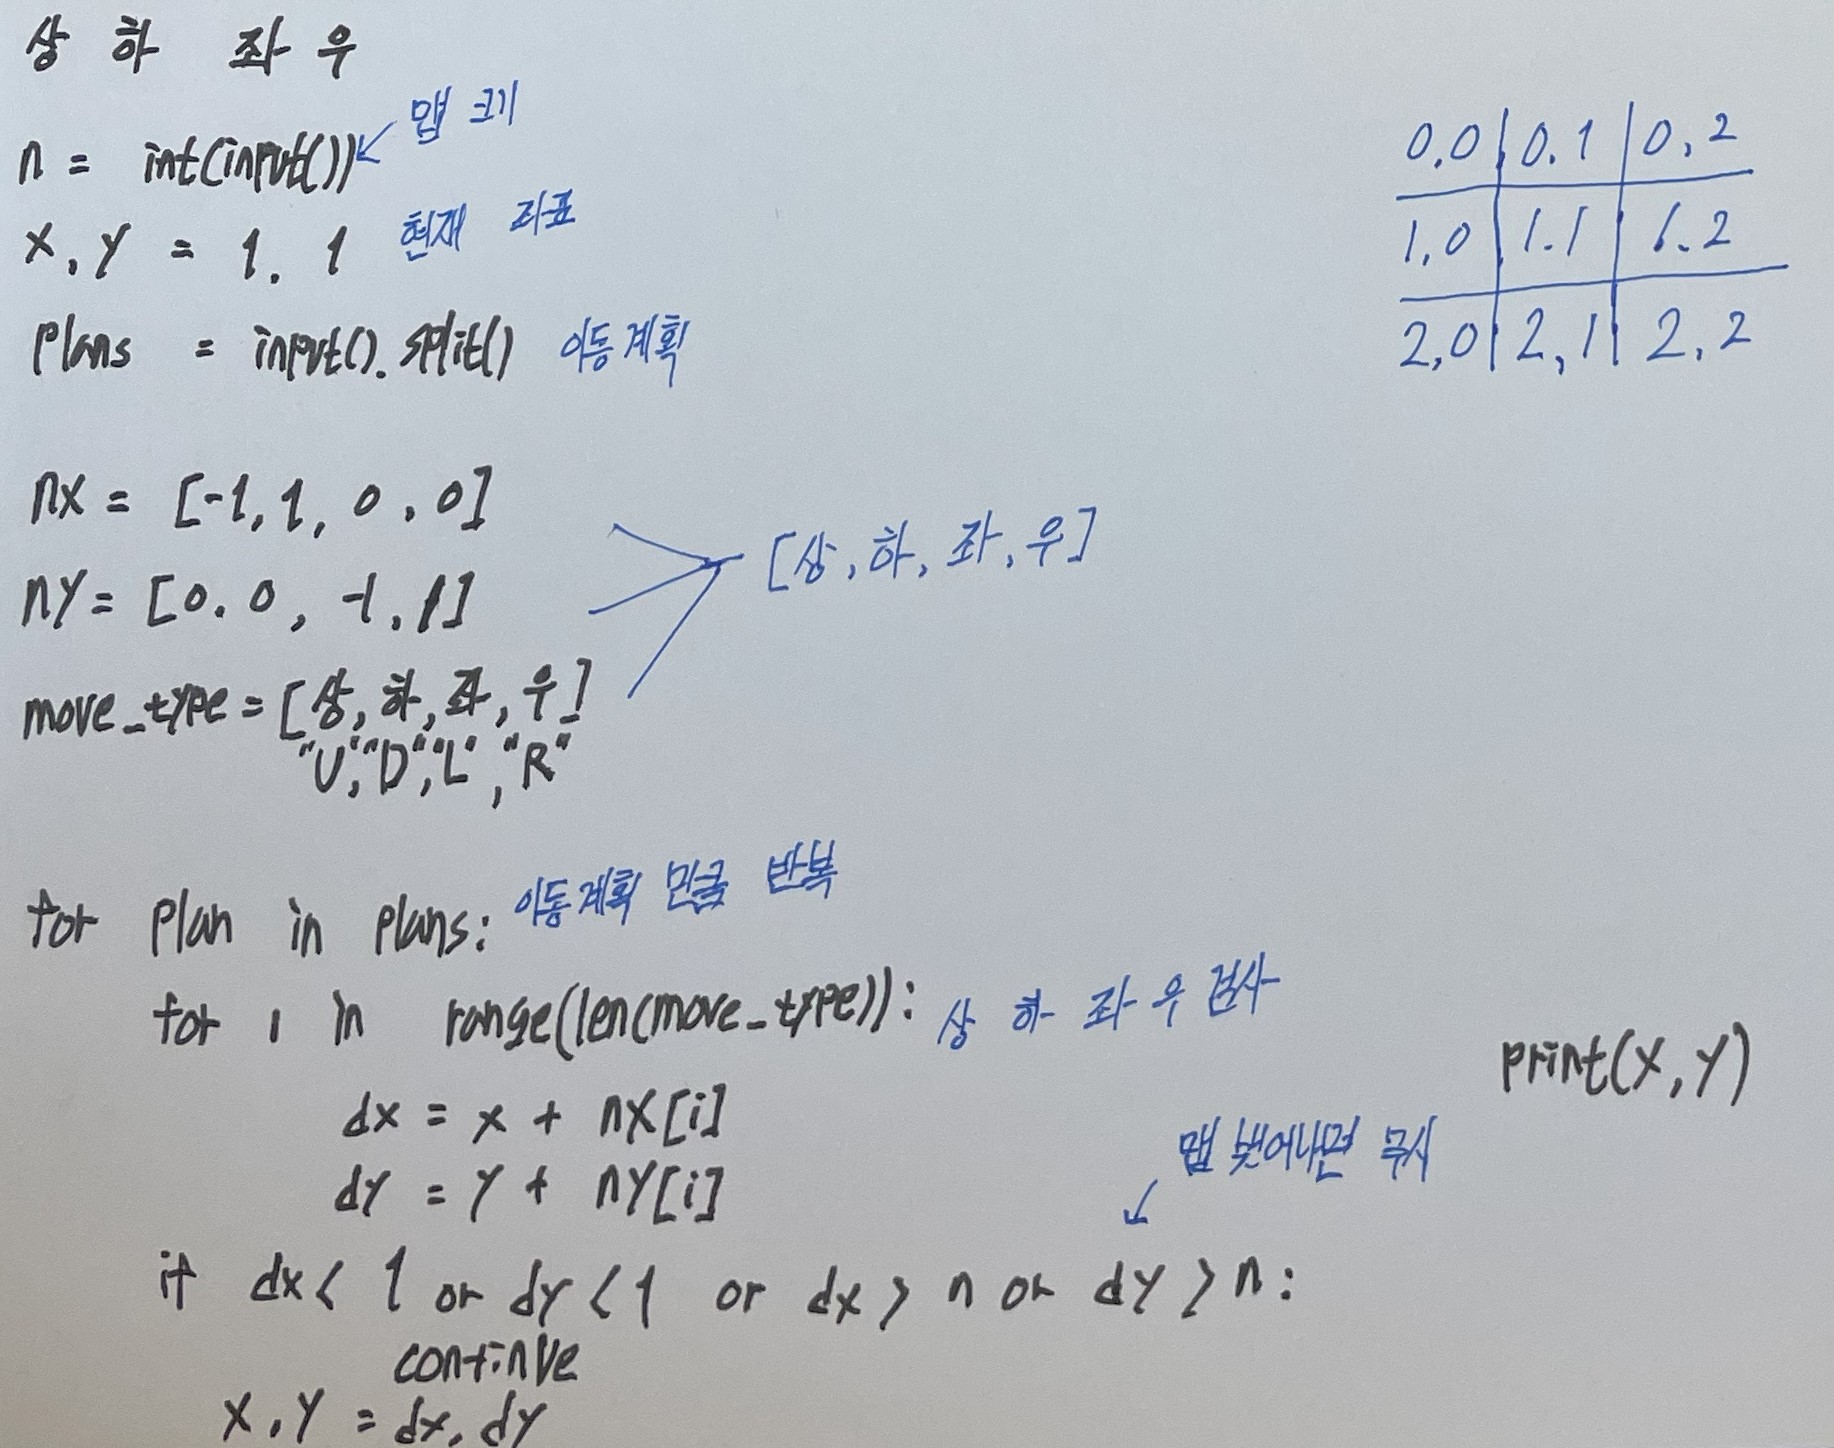 상 하 좌 우
맵 크기
n = int(input())
x, y = 1, 1 현재 좌표
plans = input().split() 이동계획
0,0 0.1 0,2
1,0 1.1 1.2
2,0 2,1 2,2
nx = [-1, 1, 0, 0]
ny = [0, 0, -1, 1]
[상, 하, 좌, 우]
move_type = [상, 하, 좌, 우]
"U", "D", "L", "R"
for plan in plans: 이동계획 만큼 반복
for i in range(len(move_type)): 상 하 좌 우 검사
dx = x + nx[i]
dy = y + ny[i]
print(x, y)
맵 벗어나면 무시
if dx < 1 or dy < 1 or dx > n or dy > n:
continue
x, y = dx, dy